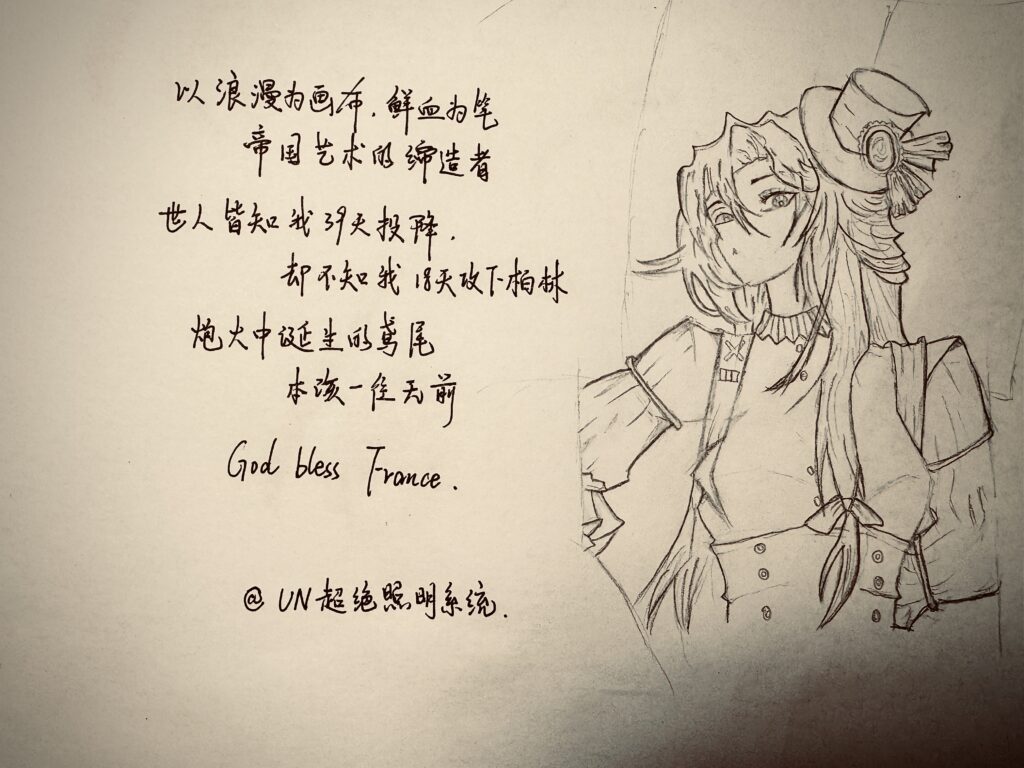 以浪漫为画布,鲜血为笔
帝国艺术的缔造者
世人皆知我39天投降,
却不知我18天攻下柏林
炮火中诞生的鸢尾
本该一往无前
God bless France.
@UN超绝照明系统.